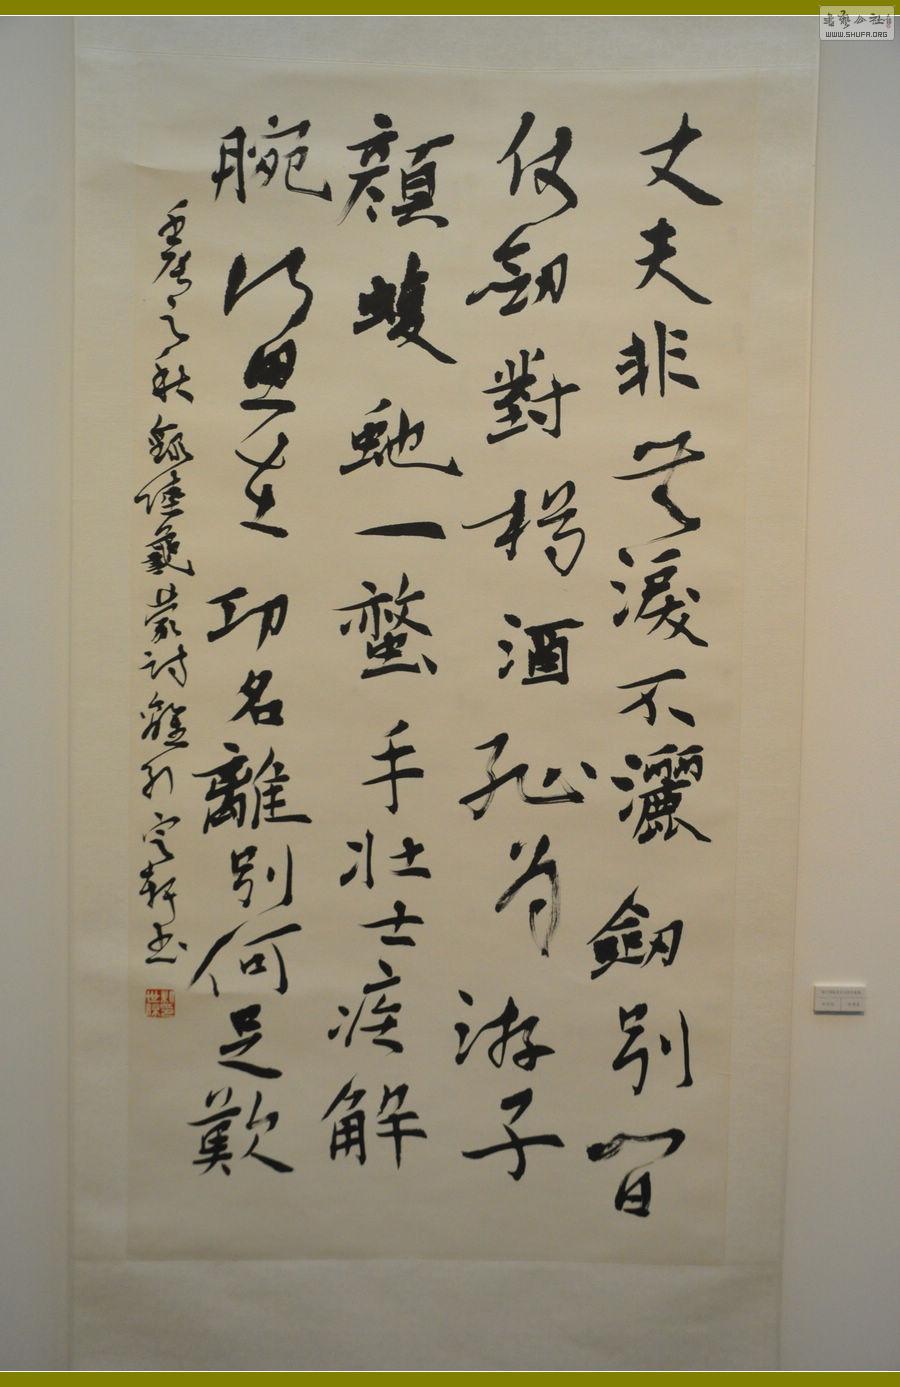 丈夫非無淚不灑劒别間
仗劒對樽酒恥為游子
顏蝮虵一螫手壯士疾解
腕所思在功名離别何足歎
壬辰之秋錄陸龜蒙詩離别定軒書
書藝公社
WWW.SHUFA.ORG